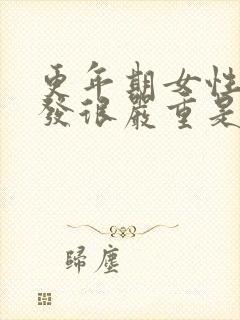 更年期女性
發很嚴重是
歸塵